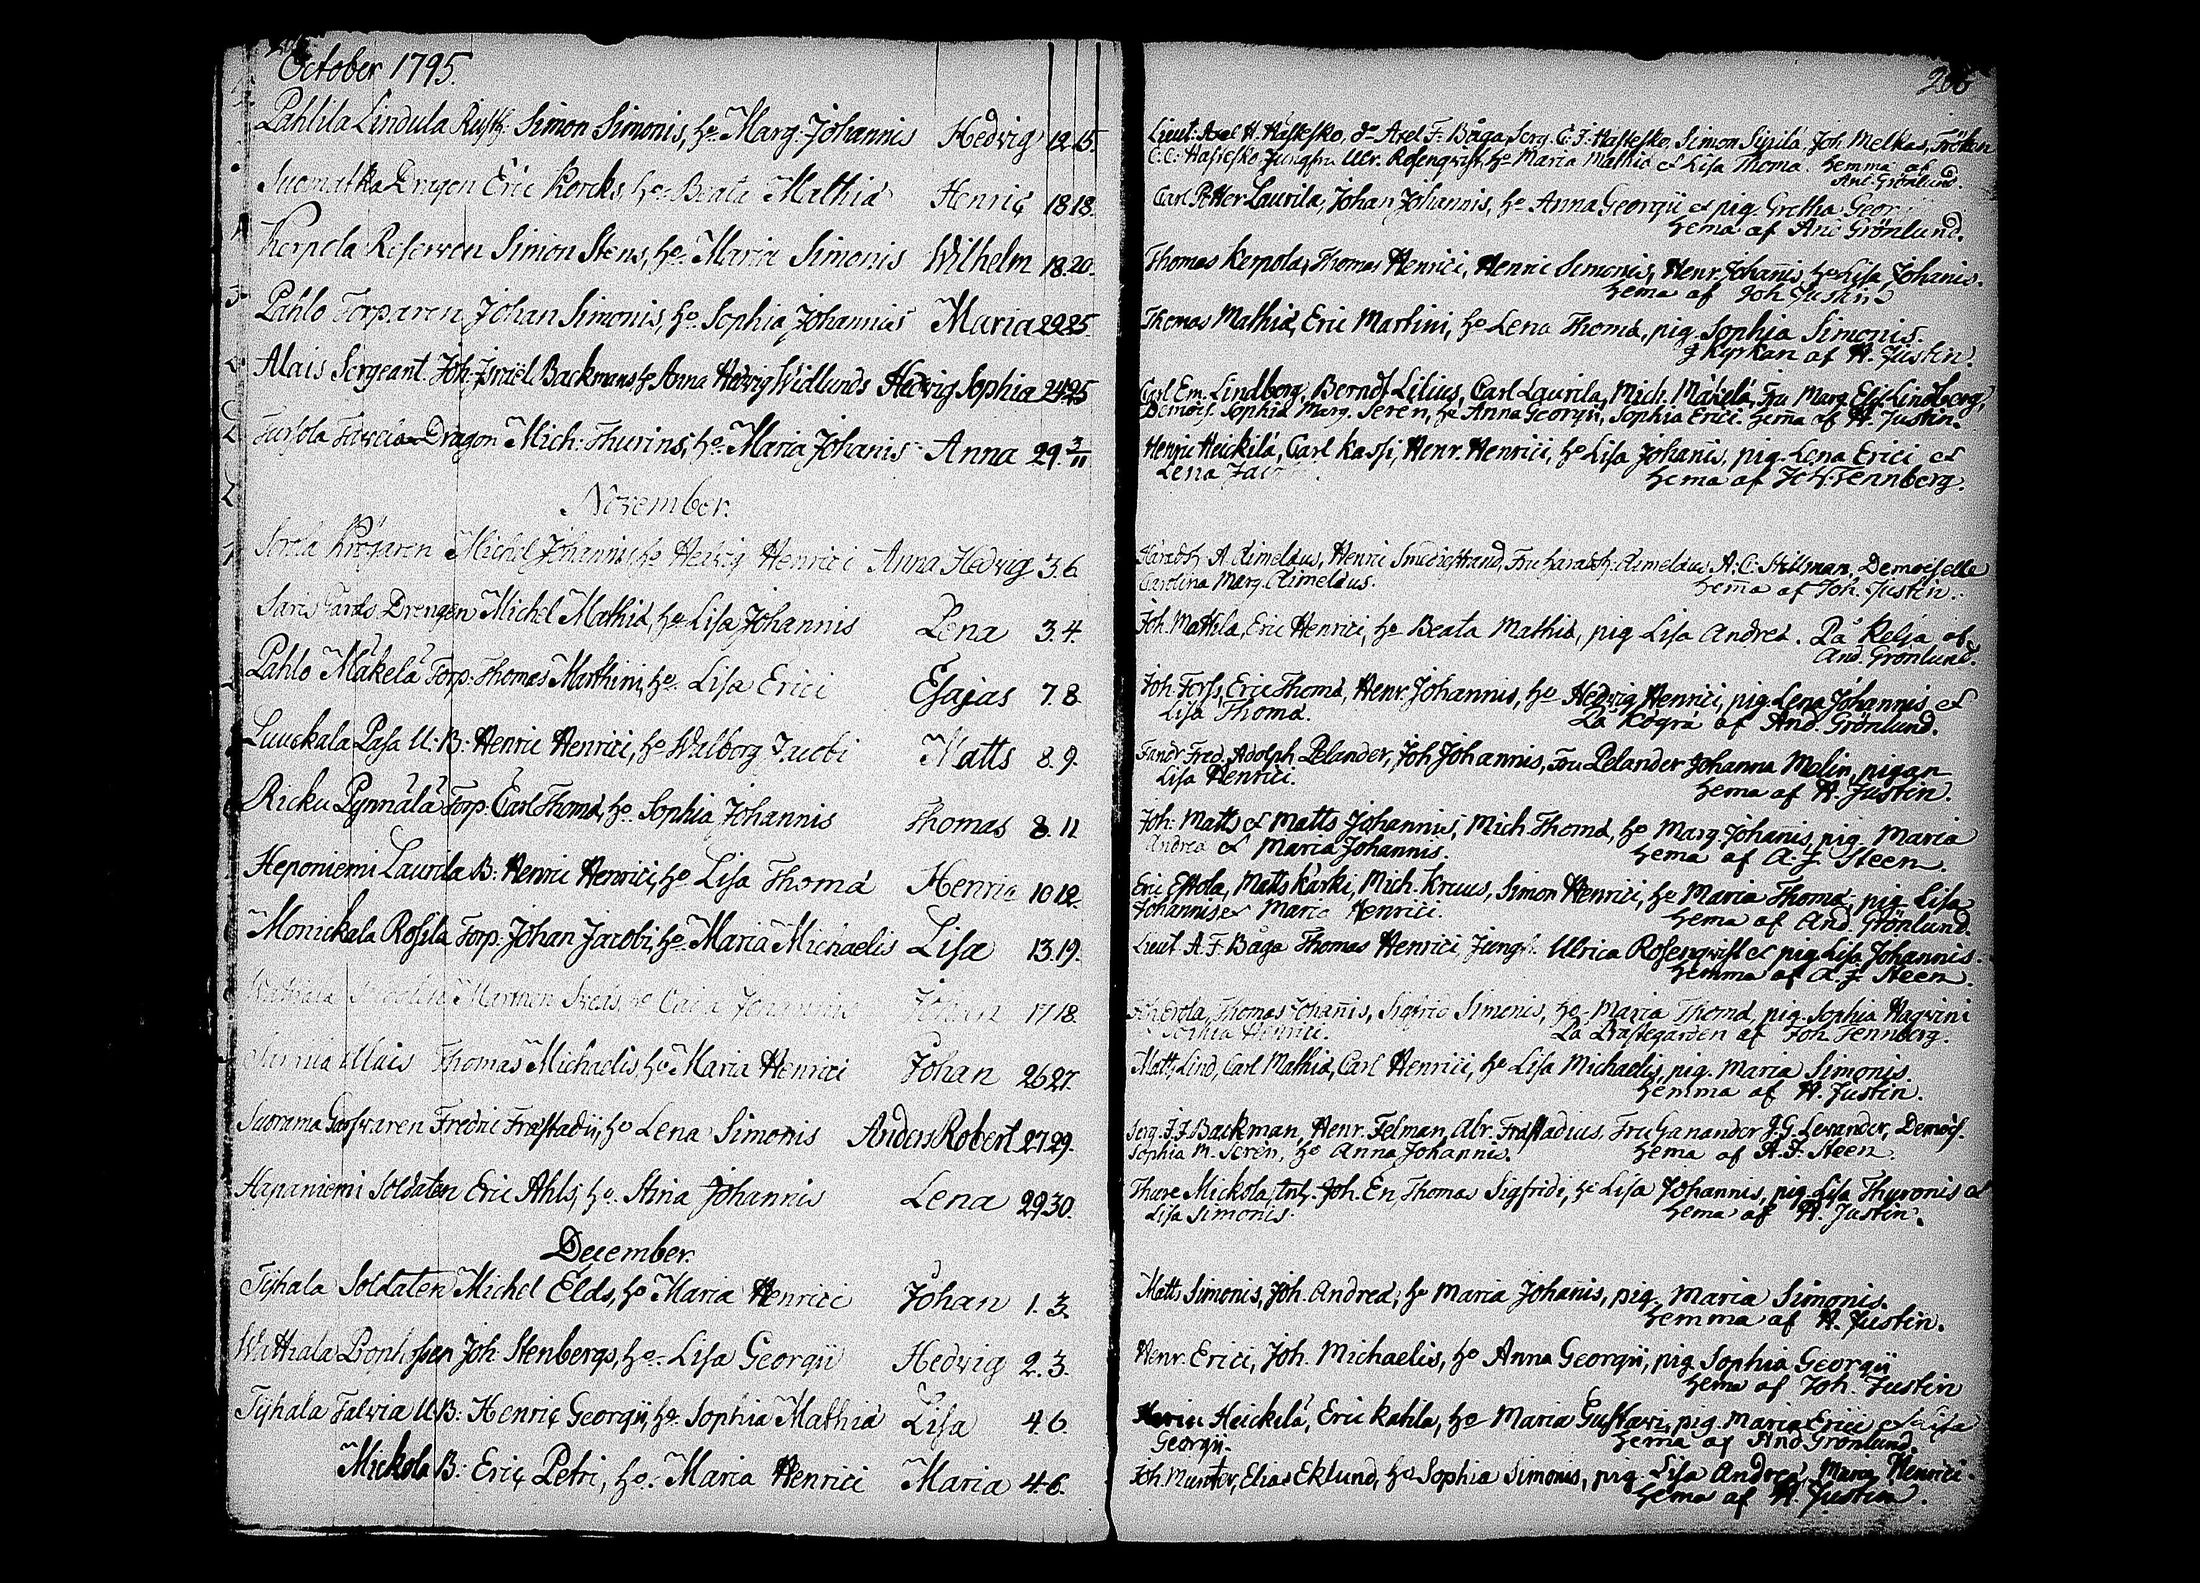 October 1795.
Pahlila Lindula Rusth: Simon Simonis, ho. Marg. Johannis Hedvig 12. 15.
Suomatka Dragon Eric Korcks, ho. Beata Mathiæ Henric 18 18.
Kerpola Reserven Simon Stens, ho. Maria Simonis Wilhelm 18. 20.
Pahlo Torparen Johan Simonis, ho. Sophia Johannis Maria 20 25.
Alais Sergeant. Joh. Israel Backmans ho Anna Hedvig Widlunds Hedvig Sophia 24 25
Dragon Mich: Thurins, ho. Maria Johanis Anna 29. 3/11
November.
Sorola Michel Johannis, ho Hedvig Henrici Anna Hedvig 3. 6.
Saris Gårds Drengen Michel Mathiæ, ho. Lisa Johannis Lena 3. 4.
Pahlo Mäkelä Torp. Thomas Marthini, ho. Lisa Erici Esajas 7. 8.
Luuckala Pasa U: B: Henric Henrici, ho Walborg Jacobi Matts 8. 9.
Ricku Pynnälä Torp. Carl Thomæ, ho. Sophia Johannis Thomas 8. 11
Heponiemi Laurila B: Henric Henrici, ho Lisa Thomæ Henric 10 12.
Monickala Rosila Torp. Johan Jacobi, ho. Maria Michaelis Lisa 13. 19.
Johan 17 18.
Alais Thomas Michaelis, ho. Maria Henrici Johan 26 27.
Suorama Fredric Frastadii, ho Lena Simonis Anders Robert 27 29.
Hapaniemi Soldaten Eric Ahls, ho. Stina Johannis Lena 29 30.
December.
Tyhala Soldaten Michel Elds, ho Maria Henrici Johan 1. 3.
Wathiala Joh. Stenbergs, ho. Lisa Georgii Hedvig 2. 3.
Tyhala Talvia U. B: Henric Georgii, ho. Sophia Mathiæ Lisa 4. 6.
Mickola B: Eric Petri, ho. Maria Henrici Maria 4. 6.
Lieut. Axel H. Hästesko, do Axel F. Båga, Serg. C. J. Hästesko, Simon Sipilä, Joh. Melkas, Fröken
C. C. Hästesko, Jungfru Ulr. Rosenqvist, ho Maria Mathiæ et Lisa Thomæ. hemma af
And. Grönlund.
Carl Petter Laurila, Johan Johannis, ho Anna Georgii et pig. Gretha Geor
hema af And Grönlund.
Thomas Kerpola, Thomas Henrici, Henric Simonis, Henr. Johanis, ho Lisa Johanis.
hema af Joh. Justin
Thomas Mathiæ, Eric Martini, ho Lena Thomæ, pig. Sophia Simonis.
J Kyrkan af H. Justin.
Carl Em. Lindberg, Berndt Lilius, Carl Laurila, Mich. Mäkelä, Fru Marg. Elis Lindberg,
Demois. Sophia Marg. Seren, ho Anna Georgii, Sophia Erici. hema af H. Justin.
Henric Heickilä, Carl Kassi, Henr. Henrici, ho Lisa Johanis, pig. Lena Erici et
Lena
hema af Joh. Tennberg.
A. Aimelæus, Henric Fru Aimelæus, A. C. Stillman, Demoiselle
Carolina Marg. Aimelæus. hema af Joh. Justin.
Joh. Mattila, Eric Henrici, ho Beata Mathiæ, pig Lisa Andreæ. På Kelja af
And. Grönlund.
Joh. Forss, Eric Thomæ, Henr. Johannis, ho Hedvig Henrici, pig. Lena Johannis et
Lisa Thomæ. På Kogra af And. Grönlund.
Fred. Adolph Pelander, Joh Johannis, Fru Pelander Johanna Molin, pigan
Lisa Henrici.
hema af H. Justin.
Joh: Matts et Matts Johannis, Mich Thomæ, ho Marg. Johanis, pig. Maria
Andreæ et Maria Johannis. hema af A. J Steen.
Eric Estola, Matts Kärki, Mich. Kruus, Simon Henrici, ho Maria Thomæ, pig. Lisa
Johannis et Maria Henrici. hema af And. Grönlund.
Lieut. A. F. Båga Thomas Henrici Jungf. Ulrica Rosenqvist et pig Lisa Johannis.
hemma af A. J. Steen.
Thomas Johanis, Sigfrid Simonis, ho Maria Thomæ, pig. Sophia Hagvini
Sophia Henrici. På Prästegården af Joh Tennberg.
Matts Lind, Carl Mathiæ, Carl Henrici, ho Lisa Michaelis, pig. Maria Simonis.
hemma af H. Justin.
Serg. J. J Backman, Henr. Felman, Abr. Frastadius, Fru Ganander J. G. Levander, Demois.
Sophia M. Seren, ho Anna Johannis. hema af A. J. Steen.
Thure Mickola, Joh. En, Thomas Sigfridi, ho Lisa Johannis, pig. Lisa Thuronis et
Lisa Simonis. hema af H. Justin.
Matts Simonis, Joh. Andreæ, ho Maria Johanis, pig. Maria Simonis.
hemma af H. Justin.
Henr. Erici, Joh. Michaelis, ho Anna Georgii, pig Sophia Georgii
hema af Joh. Justin
Heickilä, Eric Kahila, ho Maria Gustavi, pig. Maria Erici et Lisa
Georgii. hema af And. Grönlund.
Joh. Munter, Elias Eklund, ho Sophia Simonis, pig. Lisa Andreæ Maria Henrici.
hema af H. Justin.